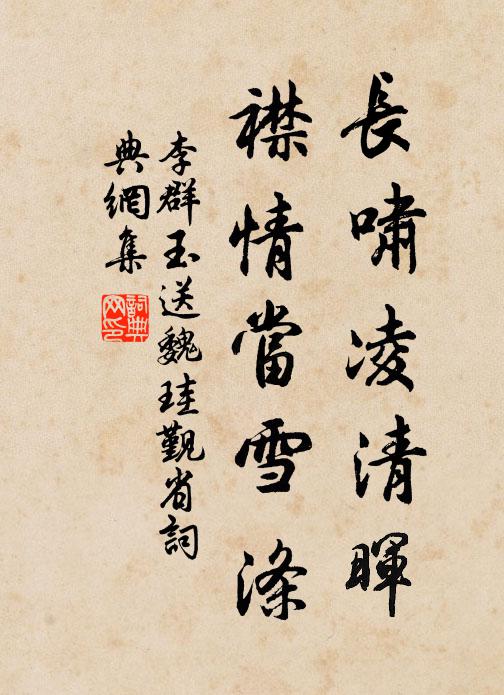 長嘯凌清暉
襟情當雪滌
李群玉送魏珪覲省詞
典網集
詞典网印